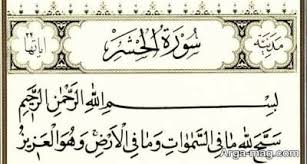 مدنية سورة الحشر آياتها ٢٤
بِسْمِ اللَّهِ الرَّحْمَٰنِ الرَّحِيمِ
سَبَّحَ لِلَّهِ مَا فِي السَّمَاوَاتِ وَمَا فِي الْأَرْضِ وَهُوَ الْعَزِيزُ
Arga-mag.com